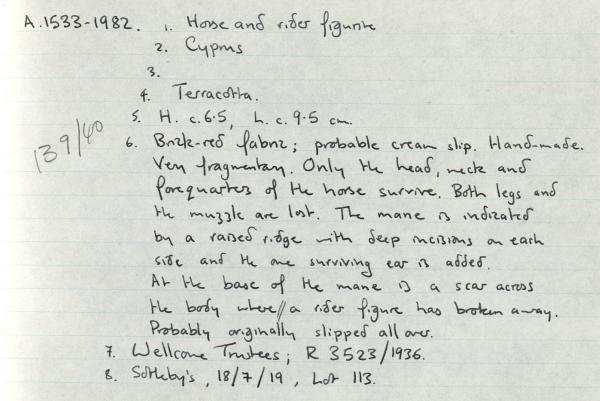 A.1533-1982. 1. Horse and rider figurine
2. Cyprus
3.
4. Terracotta.
5. H. c.6.5, L. c. 9.5 cm.
139/40
6. Brick-red fabric; probable cream slip. Hand-made.
Very fragmentary. Only the head, neck and
forequarters of the horse survive. Both legs and
the muzzle are lost. The mane is indicated
by a raised ridge with deep incisions on each
side and the one surviving ear is added.
At the base of the mane is a scar across
the body where // a rider figure has broken away.
Probably originally slipped all over.
7. Wellcome Trustees; R 3523/1936.
8. Sotheby's, 18/7/19, Lot 113.